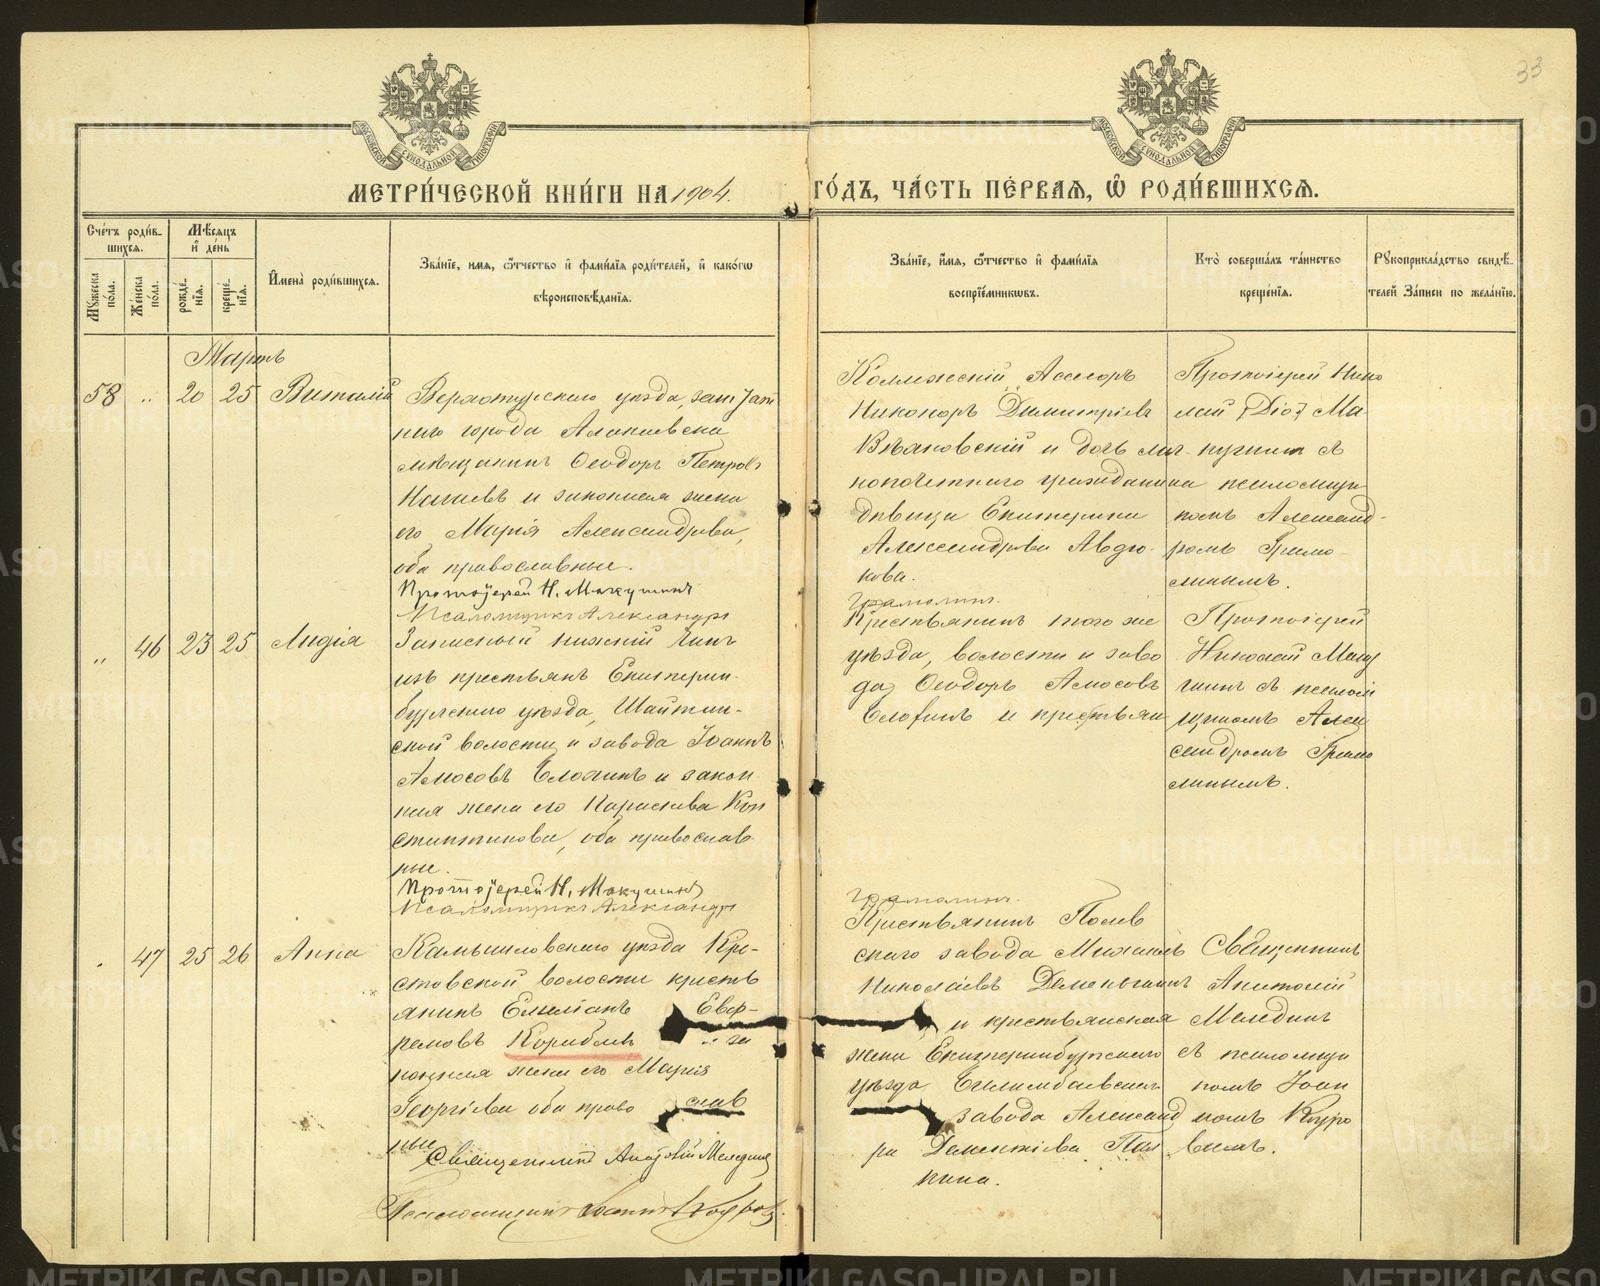 33
МЕТРИ́ЧЕСКОЙ КНИ́ГИ НА 1904.
ГО́ДЪ, ЧА́СТЬ ПЕ́РВАЯ, Ѡ РОДИ́ВШИХСЯ.
Сче́тъ роди́в-
шихся.
Мѣ́сяцъ
и де́нь
Му́жеска
по́ла.
Же́нска
по́ла.
рожде́-
нїя.
креще́-
нїя.
И҆мена̀ роди́вшихся.
Зва́нїе, имя, ѻ҆́тчество и҆ фами́лїя роди́телей, и҆ како́гѡ
вѣроисповѣ́данїя.
Зва́нїе, и҆́мя, ѻ҆́тчество и҆ фами́лїя
воспрїе́мникѡвъ.
Кто̀ соверша́лъ та́инство
креще́нїя.
Рꙋкоприкла́дство свидѣ́-
телей за́писи по жела́нїю.
Мартъ
58 " 20 25 Виталій
Верхотурскаго уѣзда, заштат
наго города Алапаевска
мѣщанинъ Ѳеодоръ Петровъ
и законная жена
его Марія Александрова,
оба православные.
Протоіерей Н. Макушинъ
Псаломщикъ Александръ
Коллежскій Ассесоръ
Никоноръ Димитріевъ
и дочь лич-
нопочетнаго гражданина
дѣвица Екатерина
Александрова Авдю-
кова.
Протоіерей Нико
лай Ма
кушинъ съ
псаломщи
комъ Александ-
ромъ
" 46 23 25 Лидія
Запасный нижній чинъ
изъ крестьянъ Екатерин-
бургскаго уѣзда, Шайтан-
ской волости и завода Іоаннъ
Амосовъ Елохинъ и закон
ная жена его Параскева Кон
стантинова, оба православ
ные.
Протоіерей Н. Макушинъ
Псаломщикъ Александръ
Крестьянинъ того же
уѣзда, волости и заво
да Ѳеодоръ Амосовъ
Елохинъ и крестьян
Протоіерей
Николай Маку
шинъ съ псалом
щикомъ Алек
сандромъ
47 25 26 Анна
Камышловскаго уѣзда Кре-
стовской волости кресть
янинъ Емеліанъ Евф-
ремовъ за
конная жена его Марія
Георгіева оба право слав
ные
Священникъ Анатолій Меледин
Псаломщикъ Іоаннъ
Крестьянинъ Полев
скаго завода Михаилъ
Николаевъ
и крестьянская
жена Екатеринбургскаго
уѣзда Билимбаевскаго
завода Александ
ра Дементіева
Священникъ
Анатолій
Меледин
съ псаломщи
комъ Іоан
номъ